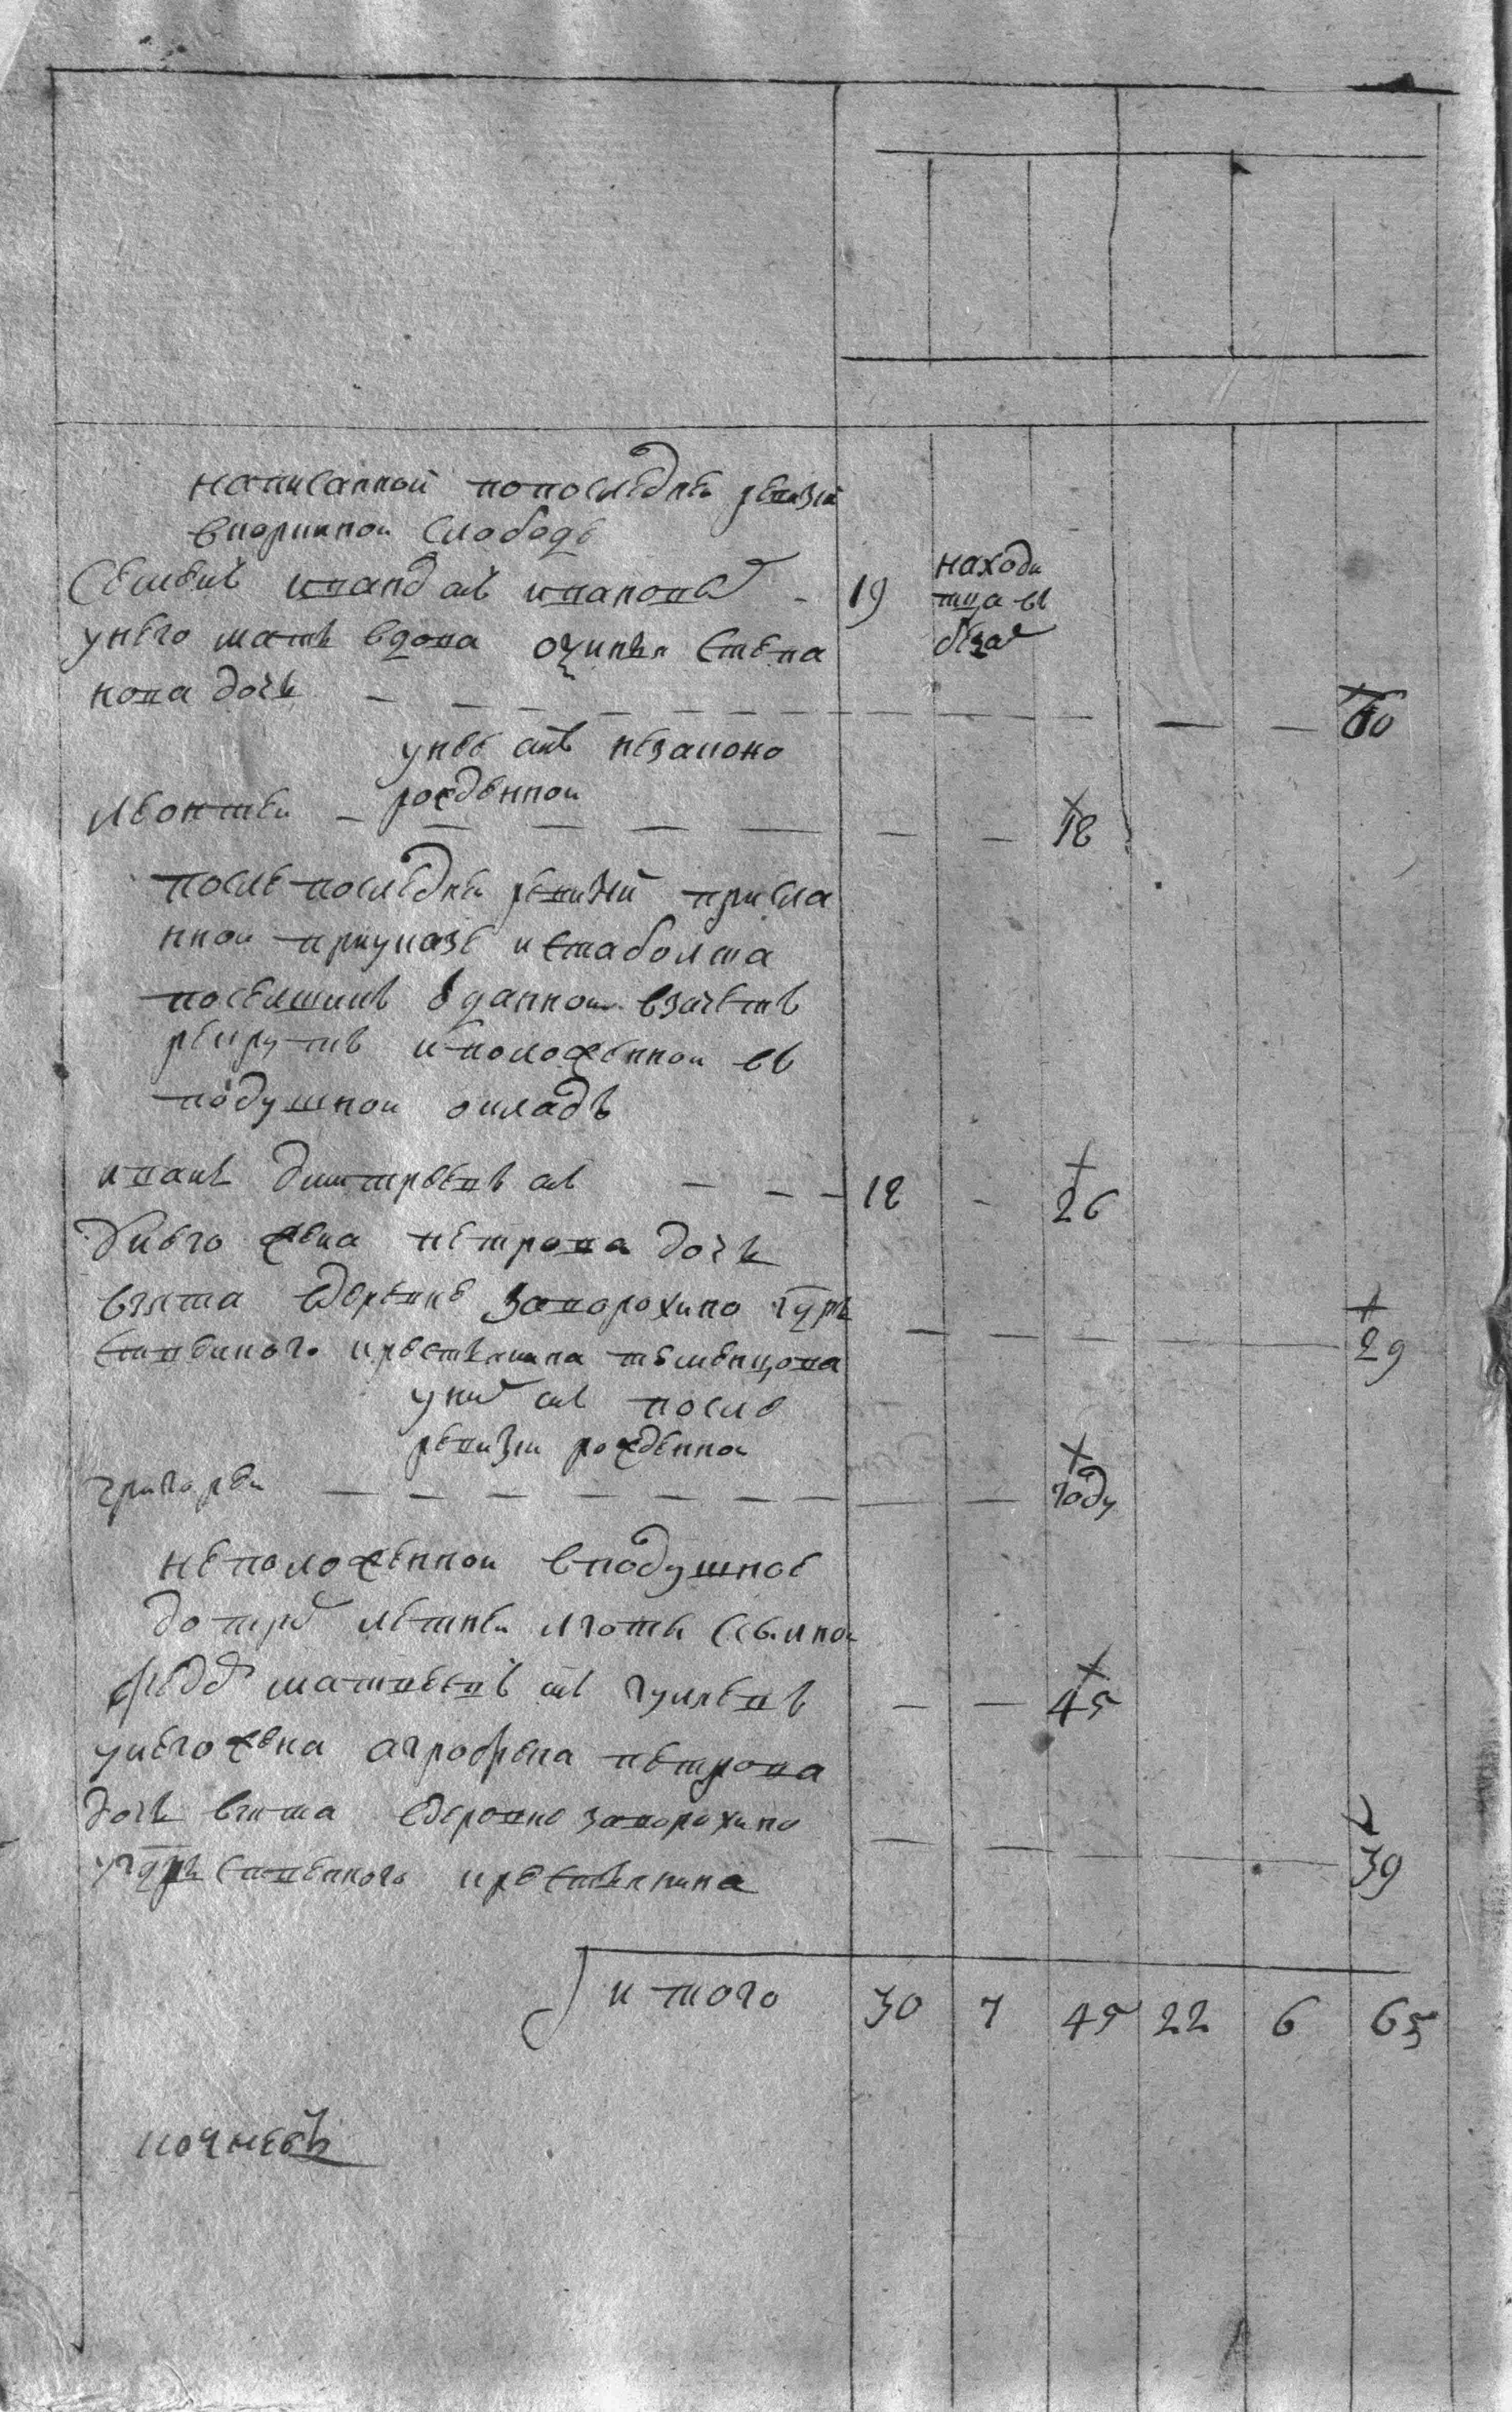 написанной попоследнеи ревизиї
вкоркиной слободе
Семенъ иван снъ ивановъ – 19 находи
тца въ
бега
унего мать вдова Степа
нова дочь – 60
унее снъ незаконо
рожденной
леонтеи – 18
после последнеи ревизиї присла
нной приуказе истаболска
поселшикъ отданнои взачетъ
рекрутъ иположенной въ
подушной окладъ
иванъ дмитреевъ снъ – 18 – 26
унего жена петрова дочь
взята вдеревне заворохино гдрь
ственного крестьянина – 29
уних снъ после
ревизи рожденнои
григореи – году
неположеннои вподушнои
до трех летнеи лготы ссылнои
федор матвеевъ снъ гуляевъ – 45
унего жена аграфена петрова
дочь взята вдеревне заворохино
угдрьственного крестьянина – 39
итого 30 7 45 22 6 65